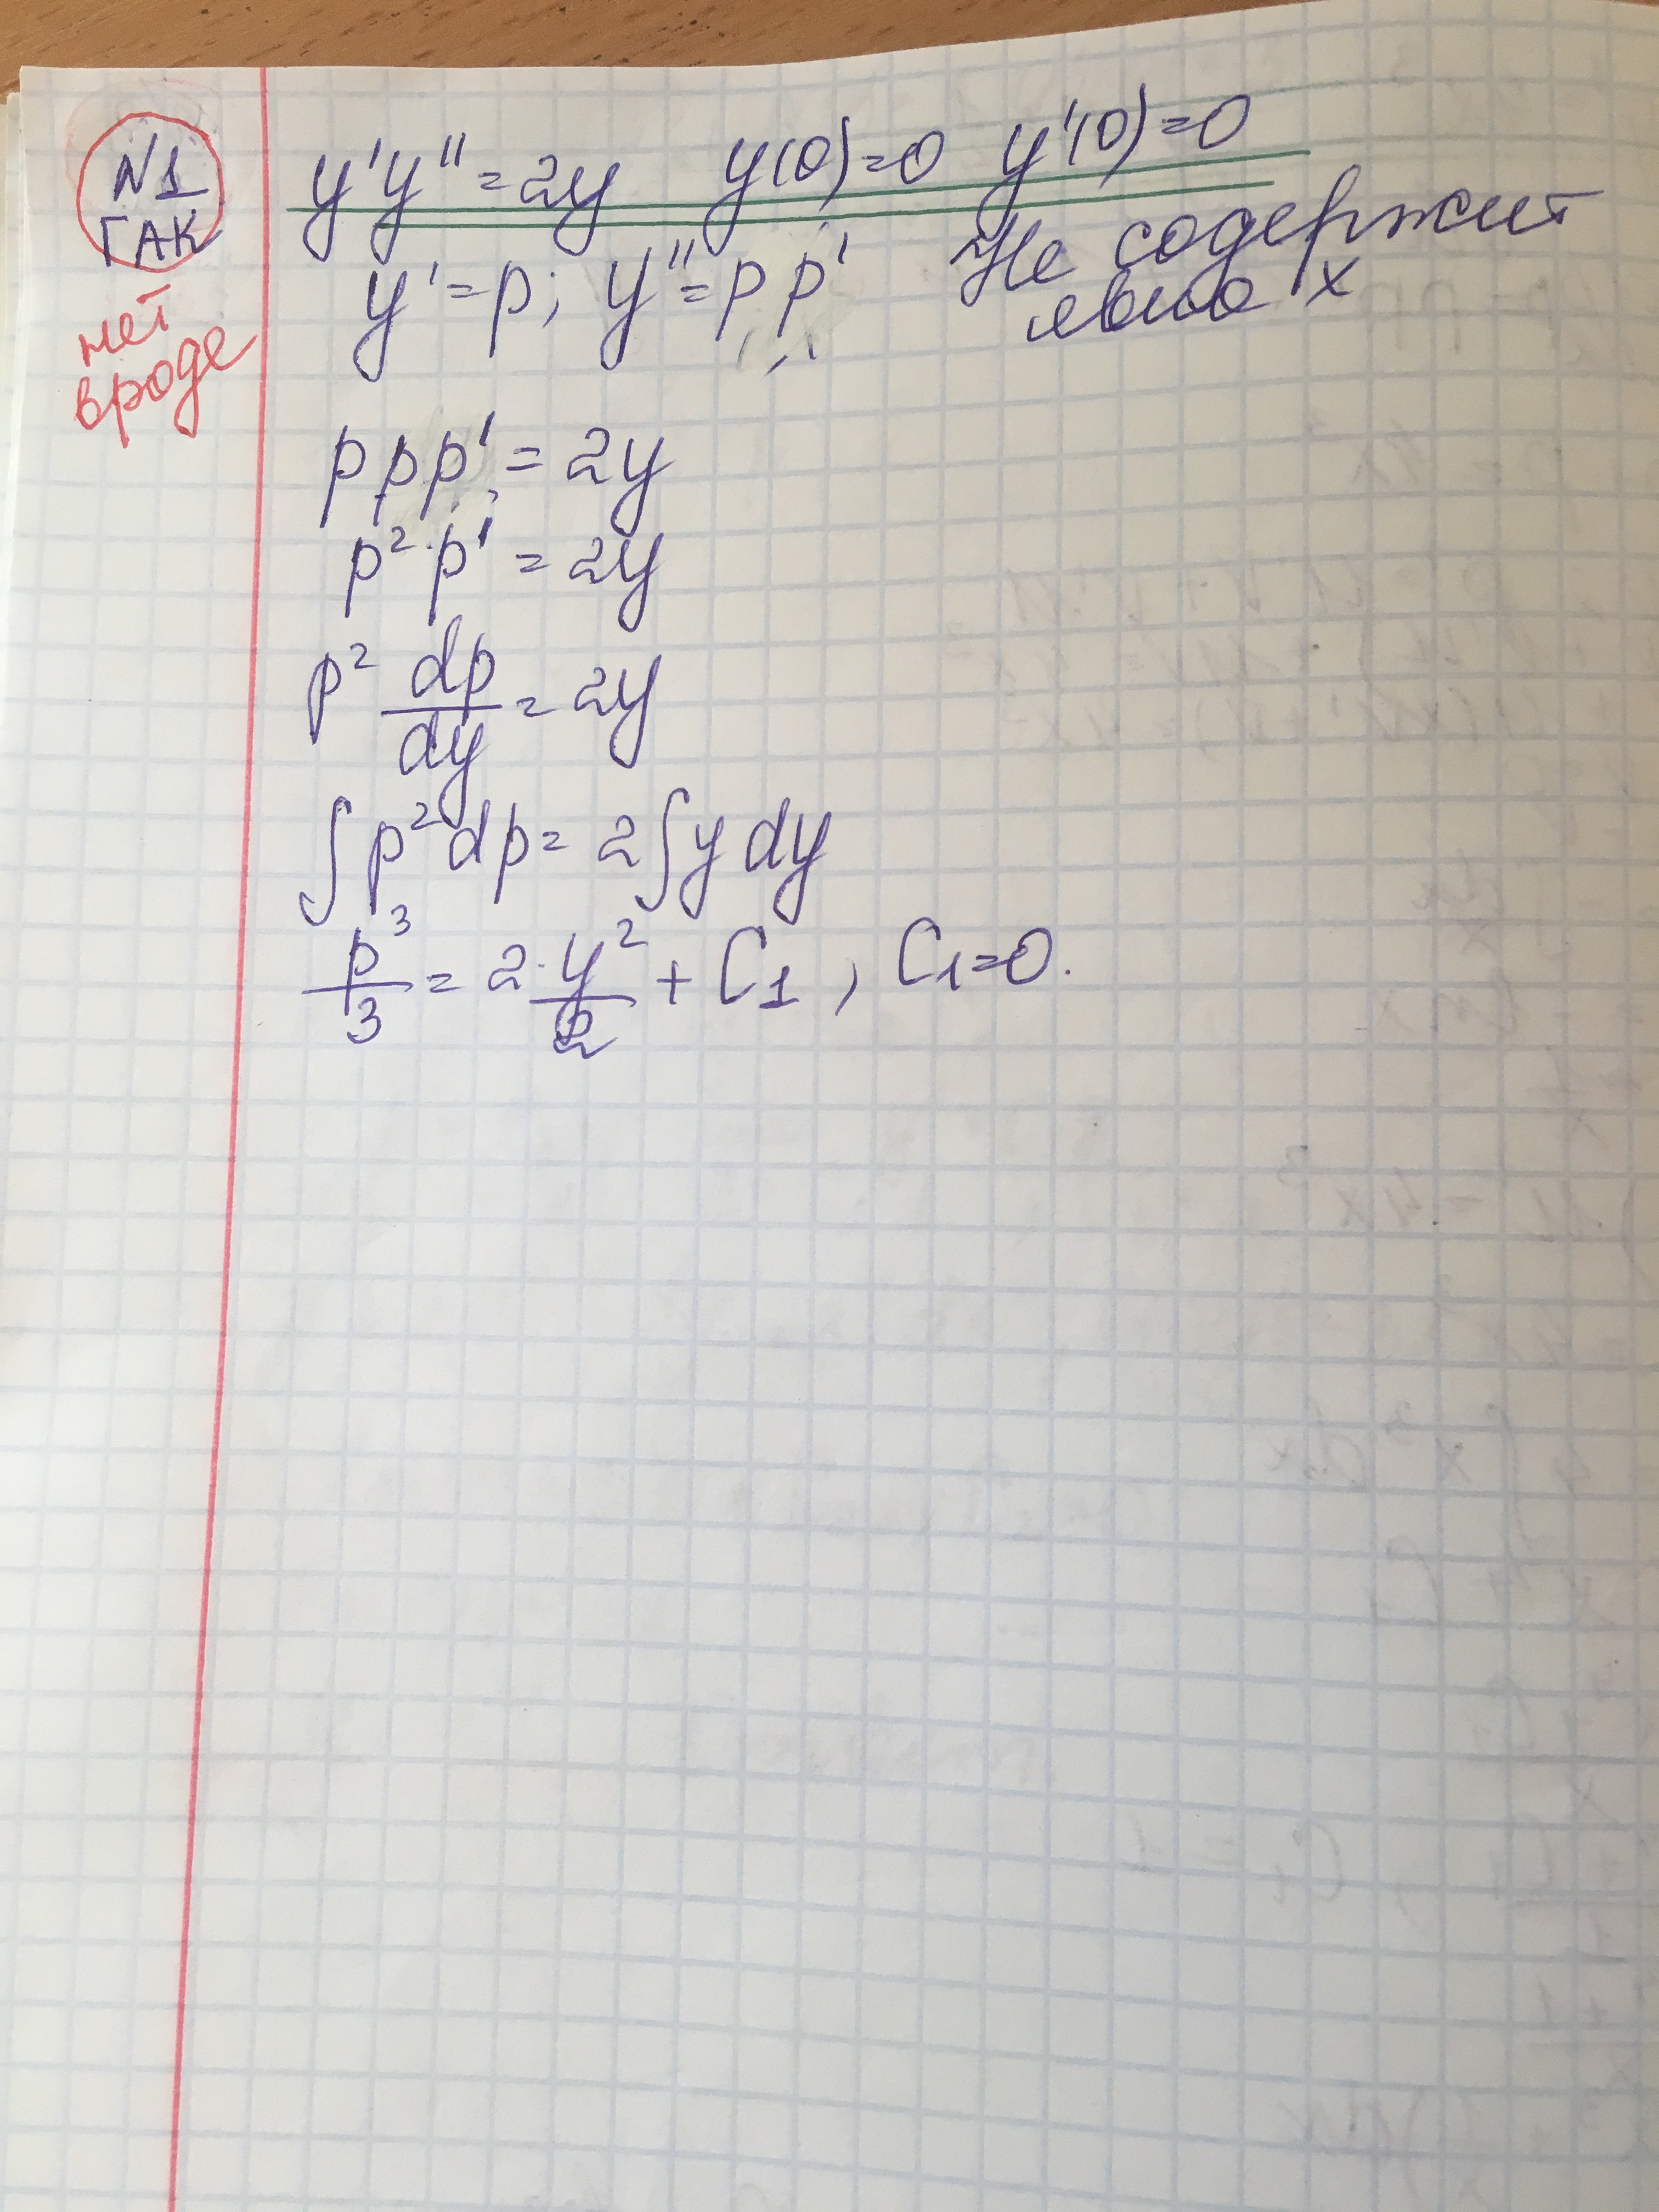 N1
ГАК
нет
вроде
y'y'' = 2y   y(0)=0   y'(0)=0
y'=p; y''=pp'   Не содержит
явно x
ppp' = 2y
p²·p' = 2y
p² dp/dy = 2y
∫p²dp = 2∫y dy
p³/3 = 2·y²/2 + C₁, C₁=0.